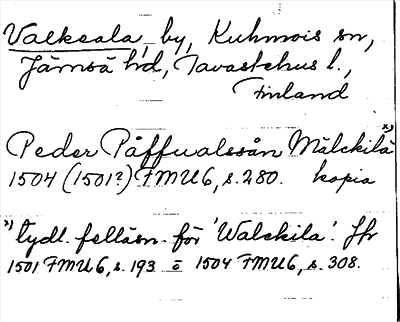 Valkeala, by, Kuhmois sn,
Jämsä hd, Tavastehus l.,
Finland
Peder Påffvalssån Mälckilä x)
1504 (1501?) FMU 6, s. 280. kopia
x) tydl. felläsn. för 'Walckila'. Jfr
1501 FMU 6, s. 193 o 1504 FMU 6, s. 308.